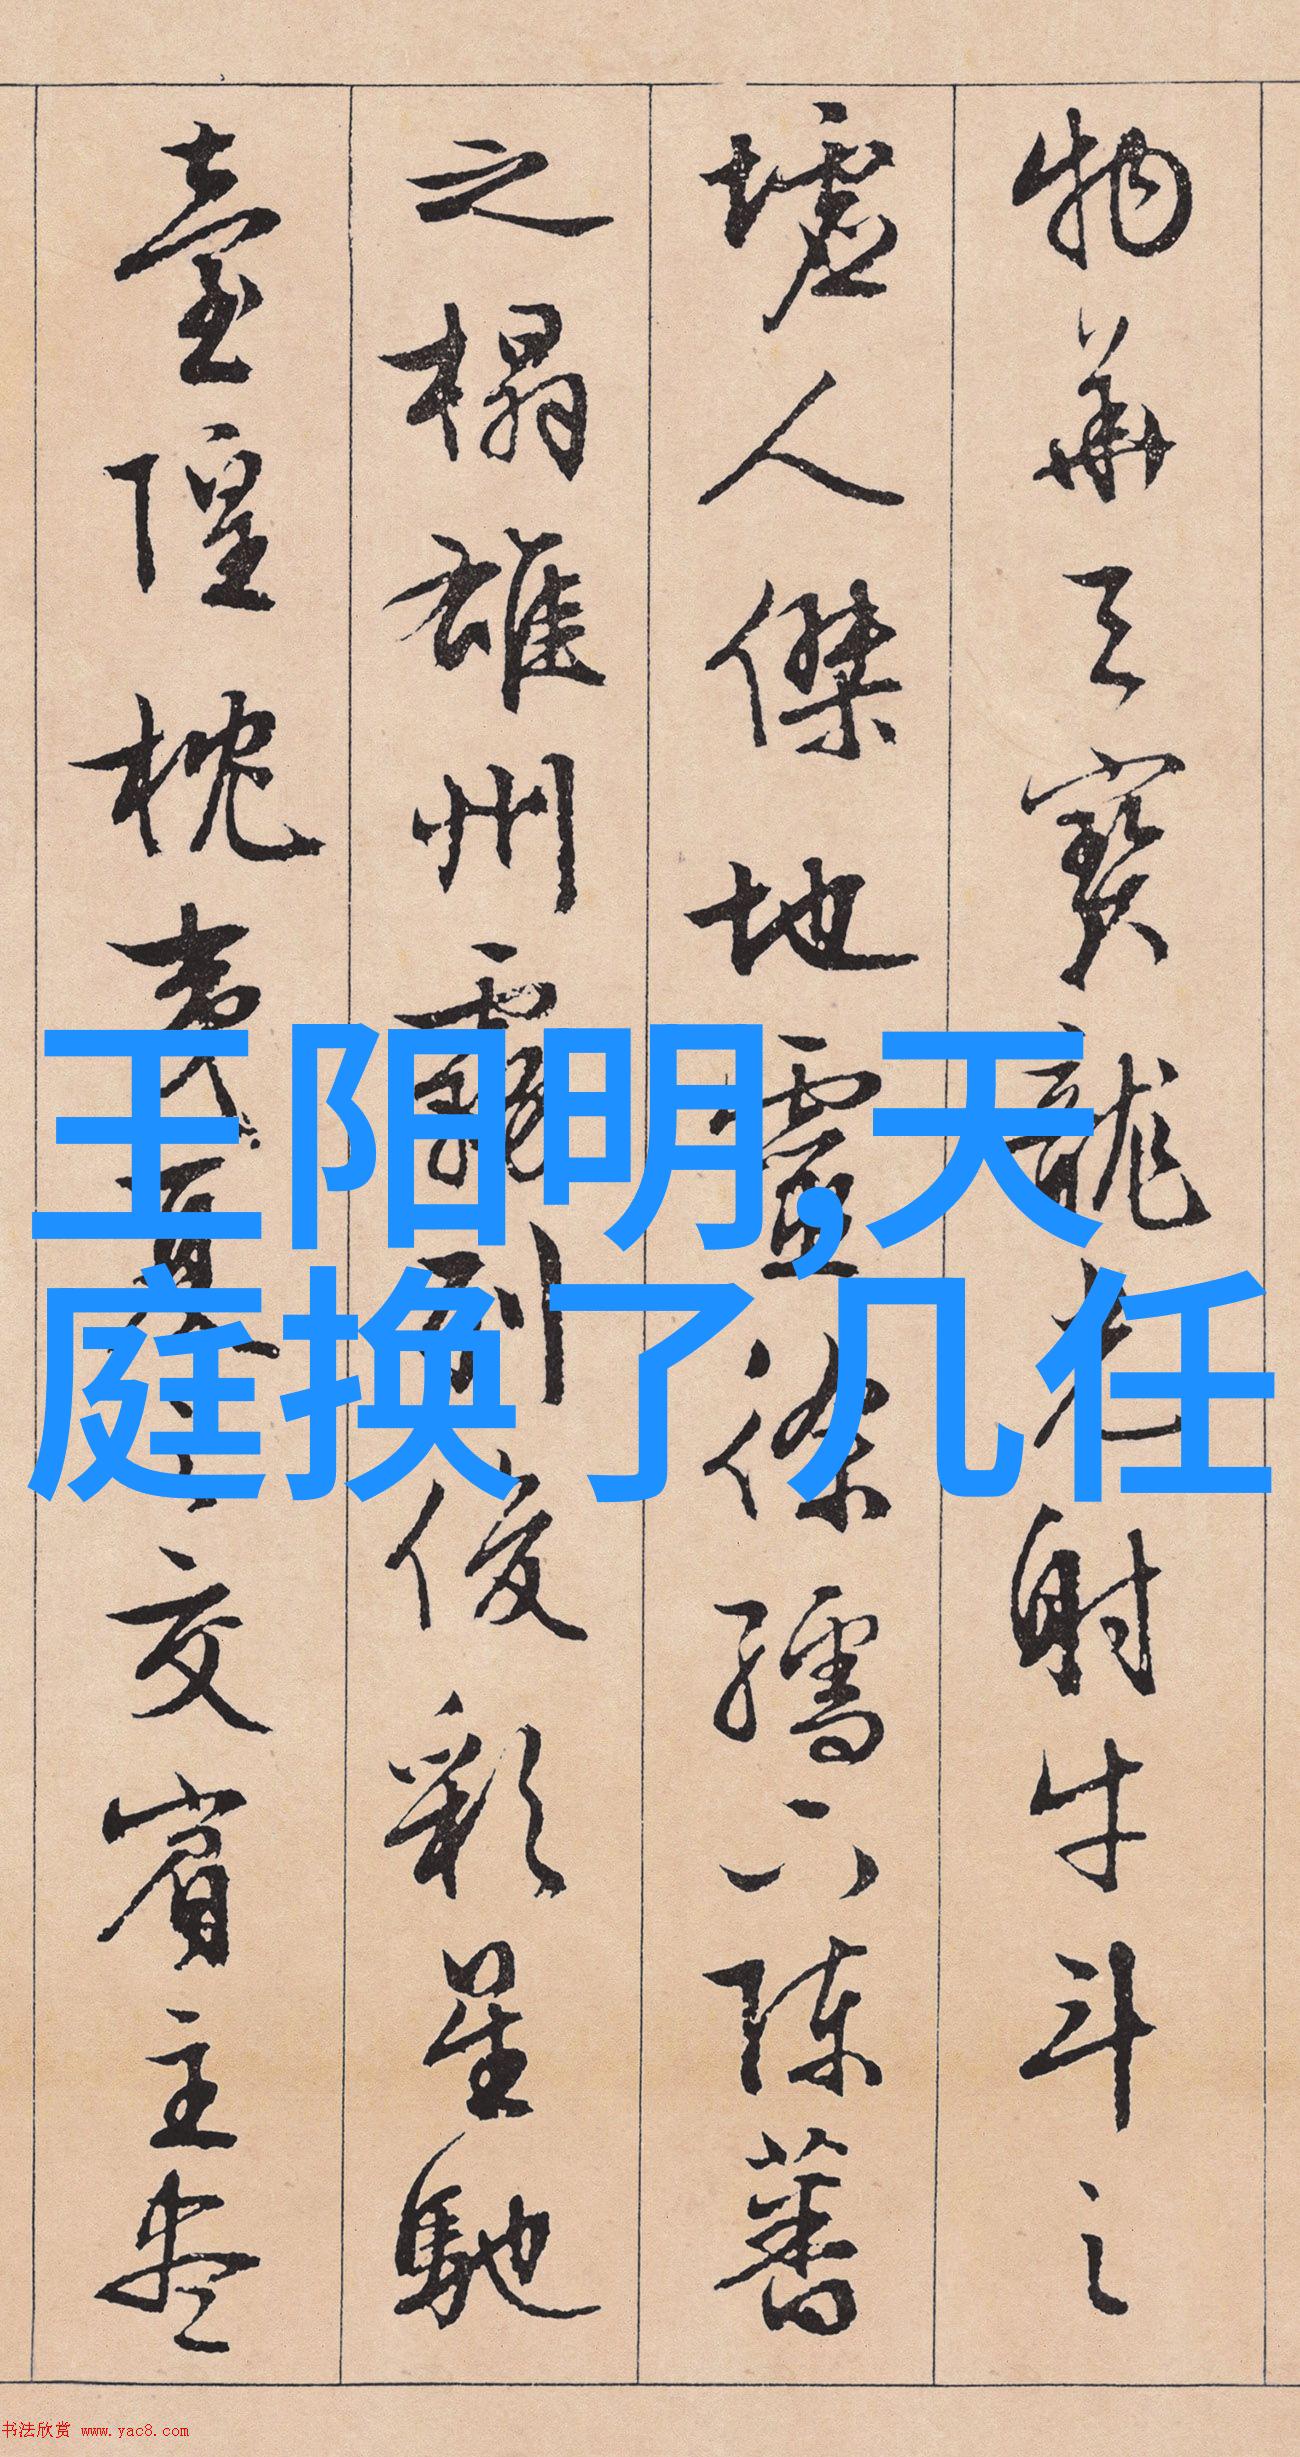 物華天寶龍光射牛斗之
墟人傑地靈徐孺下陳蕃
之榻雄州霧列俊彩星馳
臺隍枕夷夏之交賓主盡
王阳明,天
庭换了几任
书法欣赏 www.yac8.com